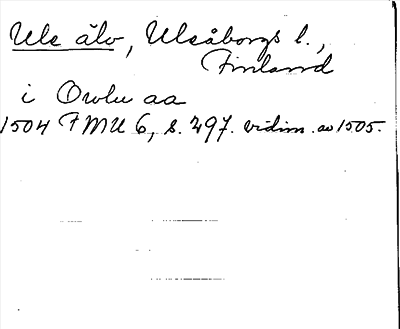 Ule älv, Uleåborgs l.,
Finland
i Owlu aa
1504 FMU 6, s. 297. vidim. av 1505.